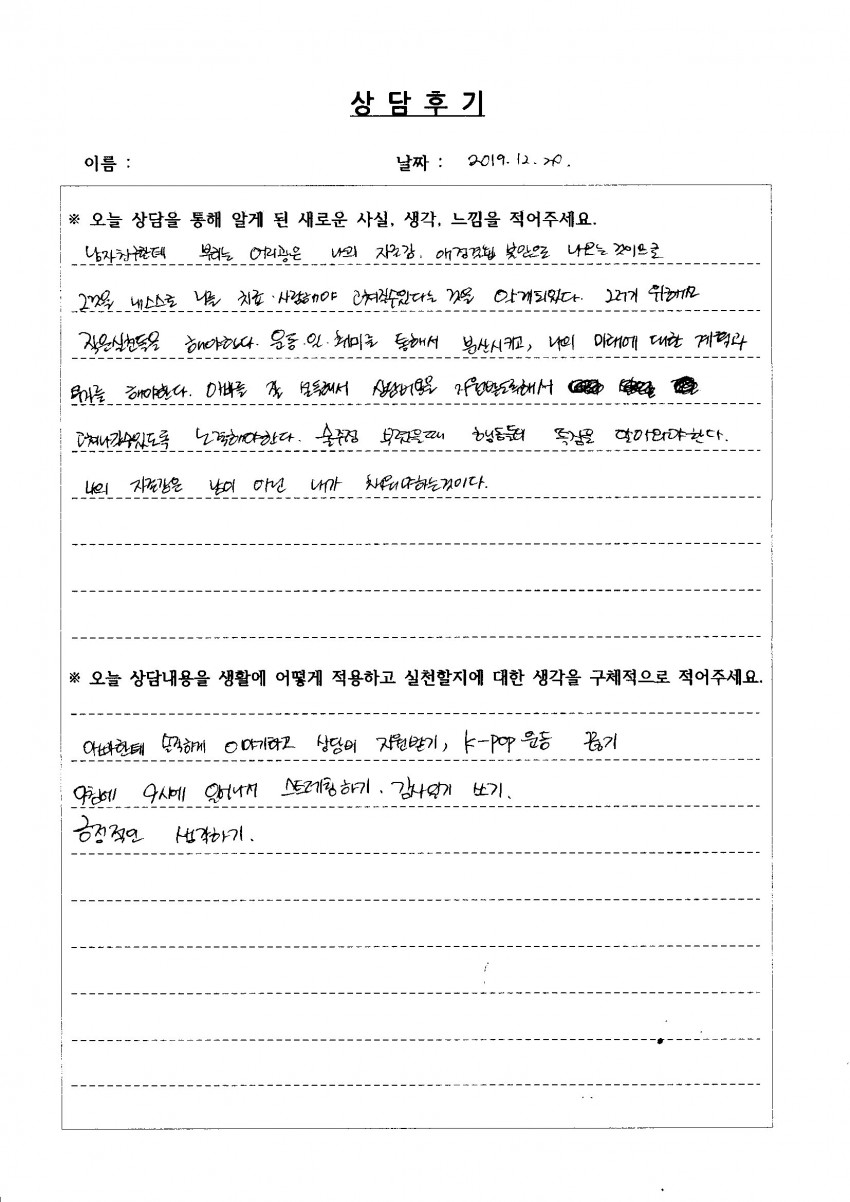 상 담 후 기
이름 :
날짜 : 2019. 12. 20.
※ 오늘 상담을 통해 알게 된 새로운 사실, 생각, 느낌을 적어주세요.
남자친구한테 부리는 어리광은 나의 자존감. 애정결핍 불안으로 나오는 것이므로
그것을 내스스로 나를 치료·사랑해야 고쳐질수있다는 것을 알게되었다. 그러기 위해서
작은실천들을 해야한다. 운동·일·취미를 통해서 분산시키고, 나의 미래에 대한 계획과
투자를 해야한다. 아빠를 잘 설득해서 상담비용을 지원받도록해서
고쳐나갈수있도록 노력해야한다. 술주정 부렸을때 행동들의 똑같을 닮아와야한다.
나의 자존감은 남이 아닌 내가 채워야하는것이다.
※ 오늘 상담내용을 생활에 어떻게 적용하고 실천할지에 대한 생각을 구체적으로 적어주세요.
아빠한테 솔직하게 이야기하고 상담비 지원받기, K-pop 운동 끊기
아침에 9시에 일어나서 스트레칭하기. 감사일기 쓰기.
긍정적인 생각하기.